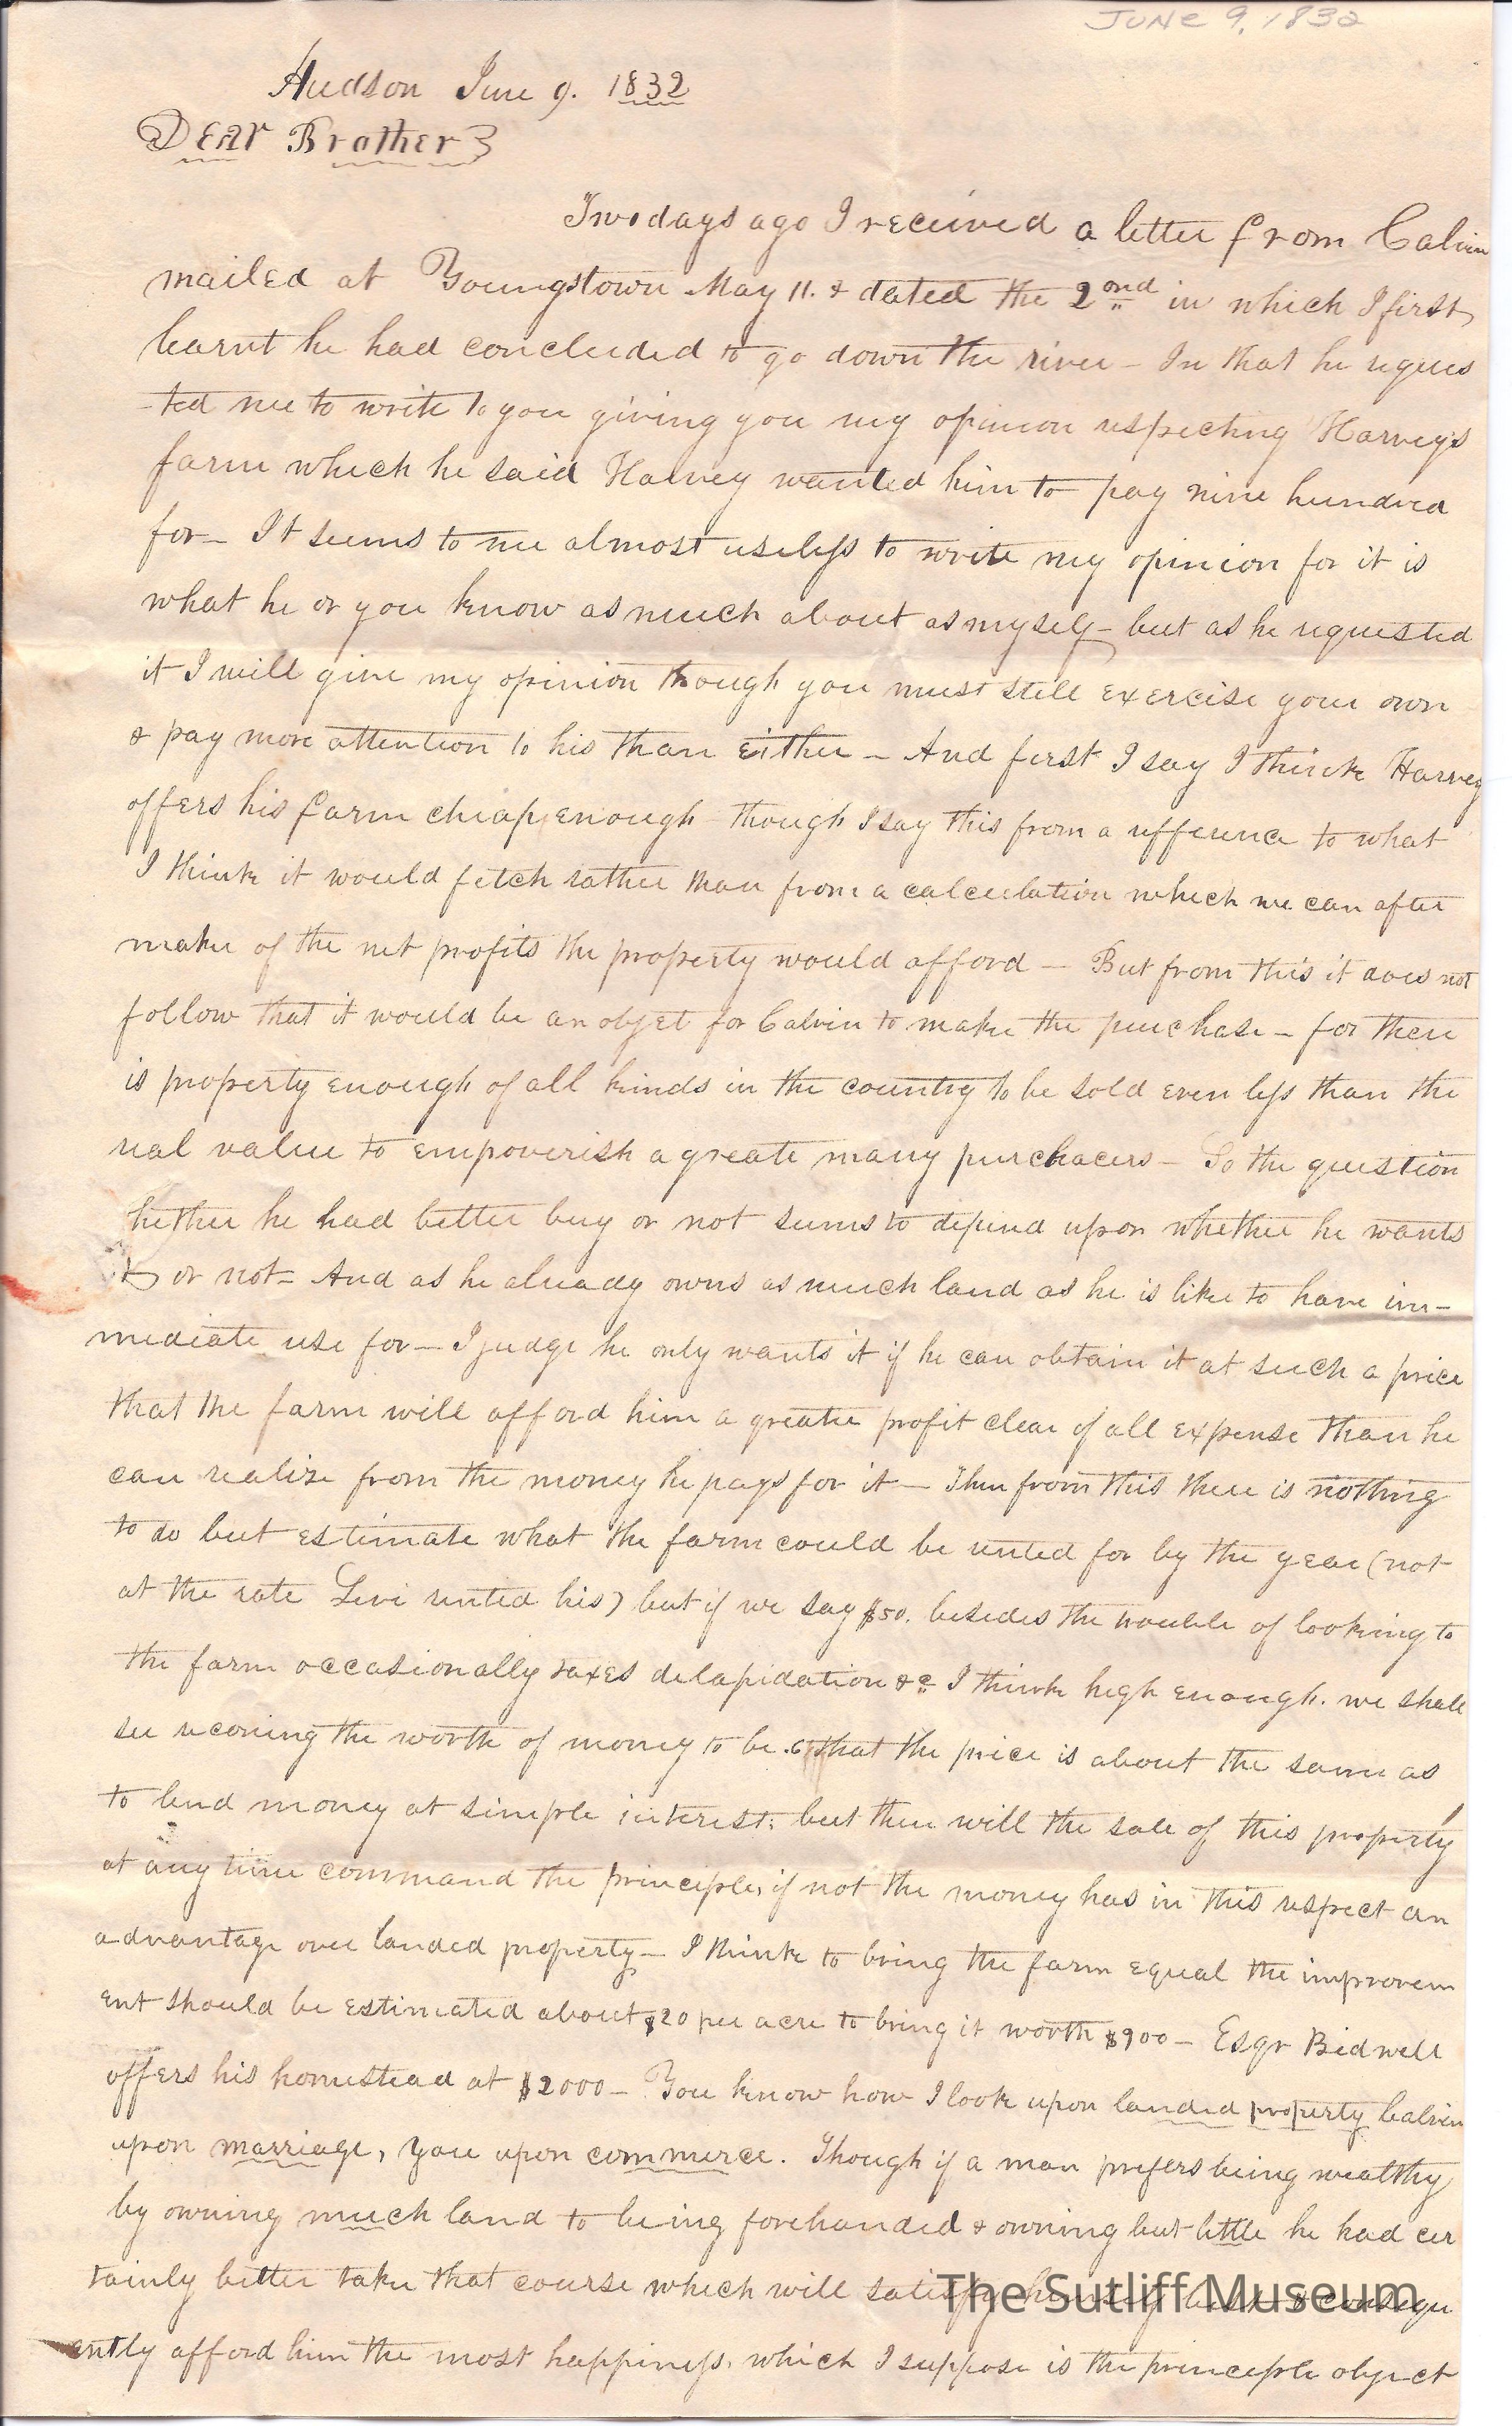 JUNE 9, 1832
Hudson June 9. 1832
Dear Brother
Two days ago I received a letter from Calvin
mailed at Youngstown May 11. & dated the 2ond in which I first
learnt he had concluded to go down the river – In that he reques
-ted me to write to you giving you my opinion respecting Harvey's
farm which he said Harvey wanted him to pay nine hundred
for – It seems to me almost useless to write my opinion for it is
what he or you know as much about as myself – but as he requested
it I will give my opinion though you must still exercise your own
& pay more attention to his than either – And first I say I think Harvey
offers his farm cheap enough though I say this from a refference to what
I think it would fetch rather than from a calculation which we can after
make of the net profits the property would afford – But from this it does not
follow that it would be an objet for Calvin to make the purchase – for there
is property enough of all kinds in the country to be sold even less than the
real value to empoverish a greate many purchacers – So the question
hether he had better buy or not seems to depend upon whether he wants
to or not – And as he already owns as much land as he is like to have im-
mediate use for – I judge he only wants it if he can obtain it at such a price
that the farm will afford him a greater profit clear of all expense than he
can realize from the money he pays for it – Then from this there is nothing
to do but estimate what the farm could be rented for by the year (not
at the rate Levi rented his) but if we say $50. besides the trouble of looking to
the farm occasionally taxes delapidation &c I think high enough. we shall
see reconing the worth of money to be .6 that the price is about the same as
to lend money at simple interest; but then will the sale of this property
at any time command the principle, if not the money has in this respect an
advantage over landed property – I think to bring the farm equal the improvem
ent should be estimated about $20 per acre to bring it worth $900 – Esqr Bidwell
offers his homestead at $2000 – You know how I look upon landed property Calvin
upon marriage, you upon commerce. Though if a man prefers being wealthy
by owning much land to being forehanded & owning but little he had cer
tainly better take that course which will satisfy himself best & consequ
The Sutliff Museum
ently afford him the most happiness, which I suppose is the principle object